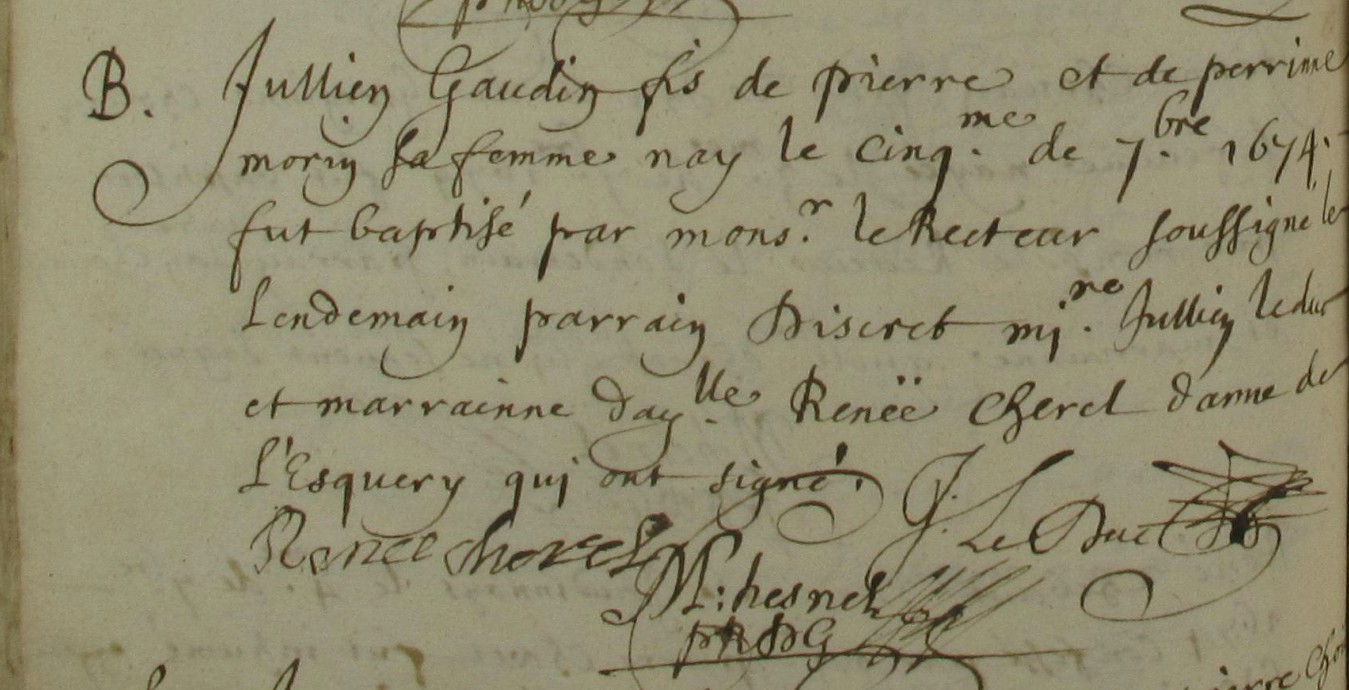 B. Jullien Gaudin fis de pierre et de perrinne
morin sa femme nay le cinq.me de 7.bre 1674.
fut baptisé par mons.r le Recteur soussigné le
Lendemain parrain Discret mi.re Jullien leduc
et marrainne day.lle Renëe Cherel damme de
L'Esquery qui ont signé.
J. Le Duc
Renee cherel
M: hesnel